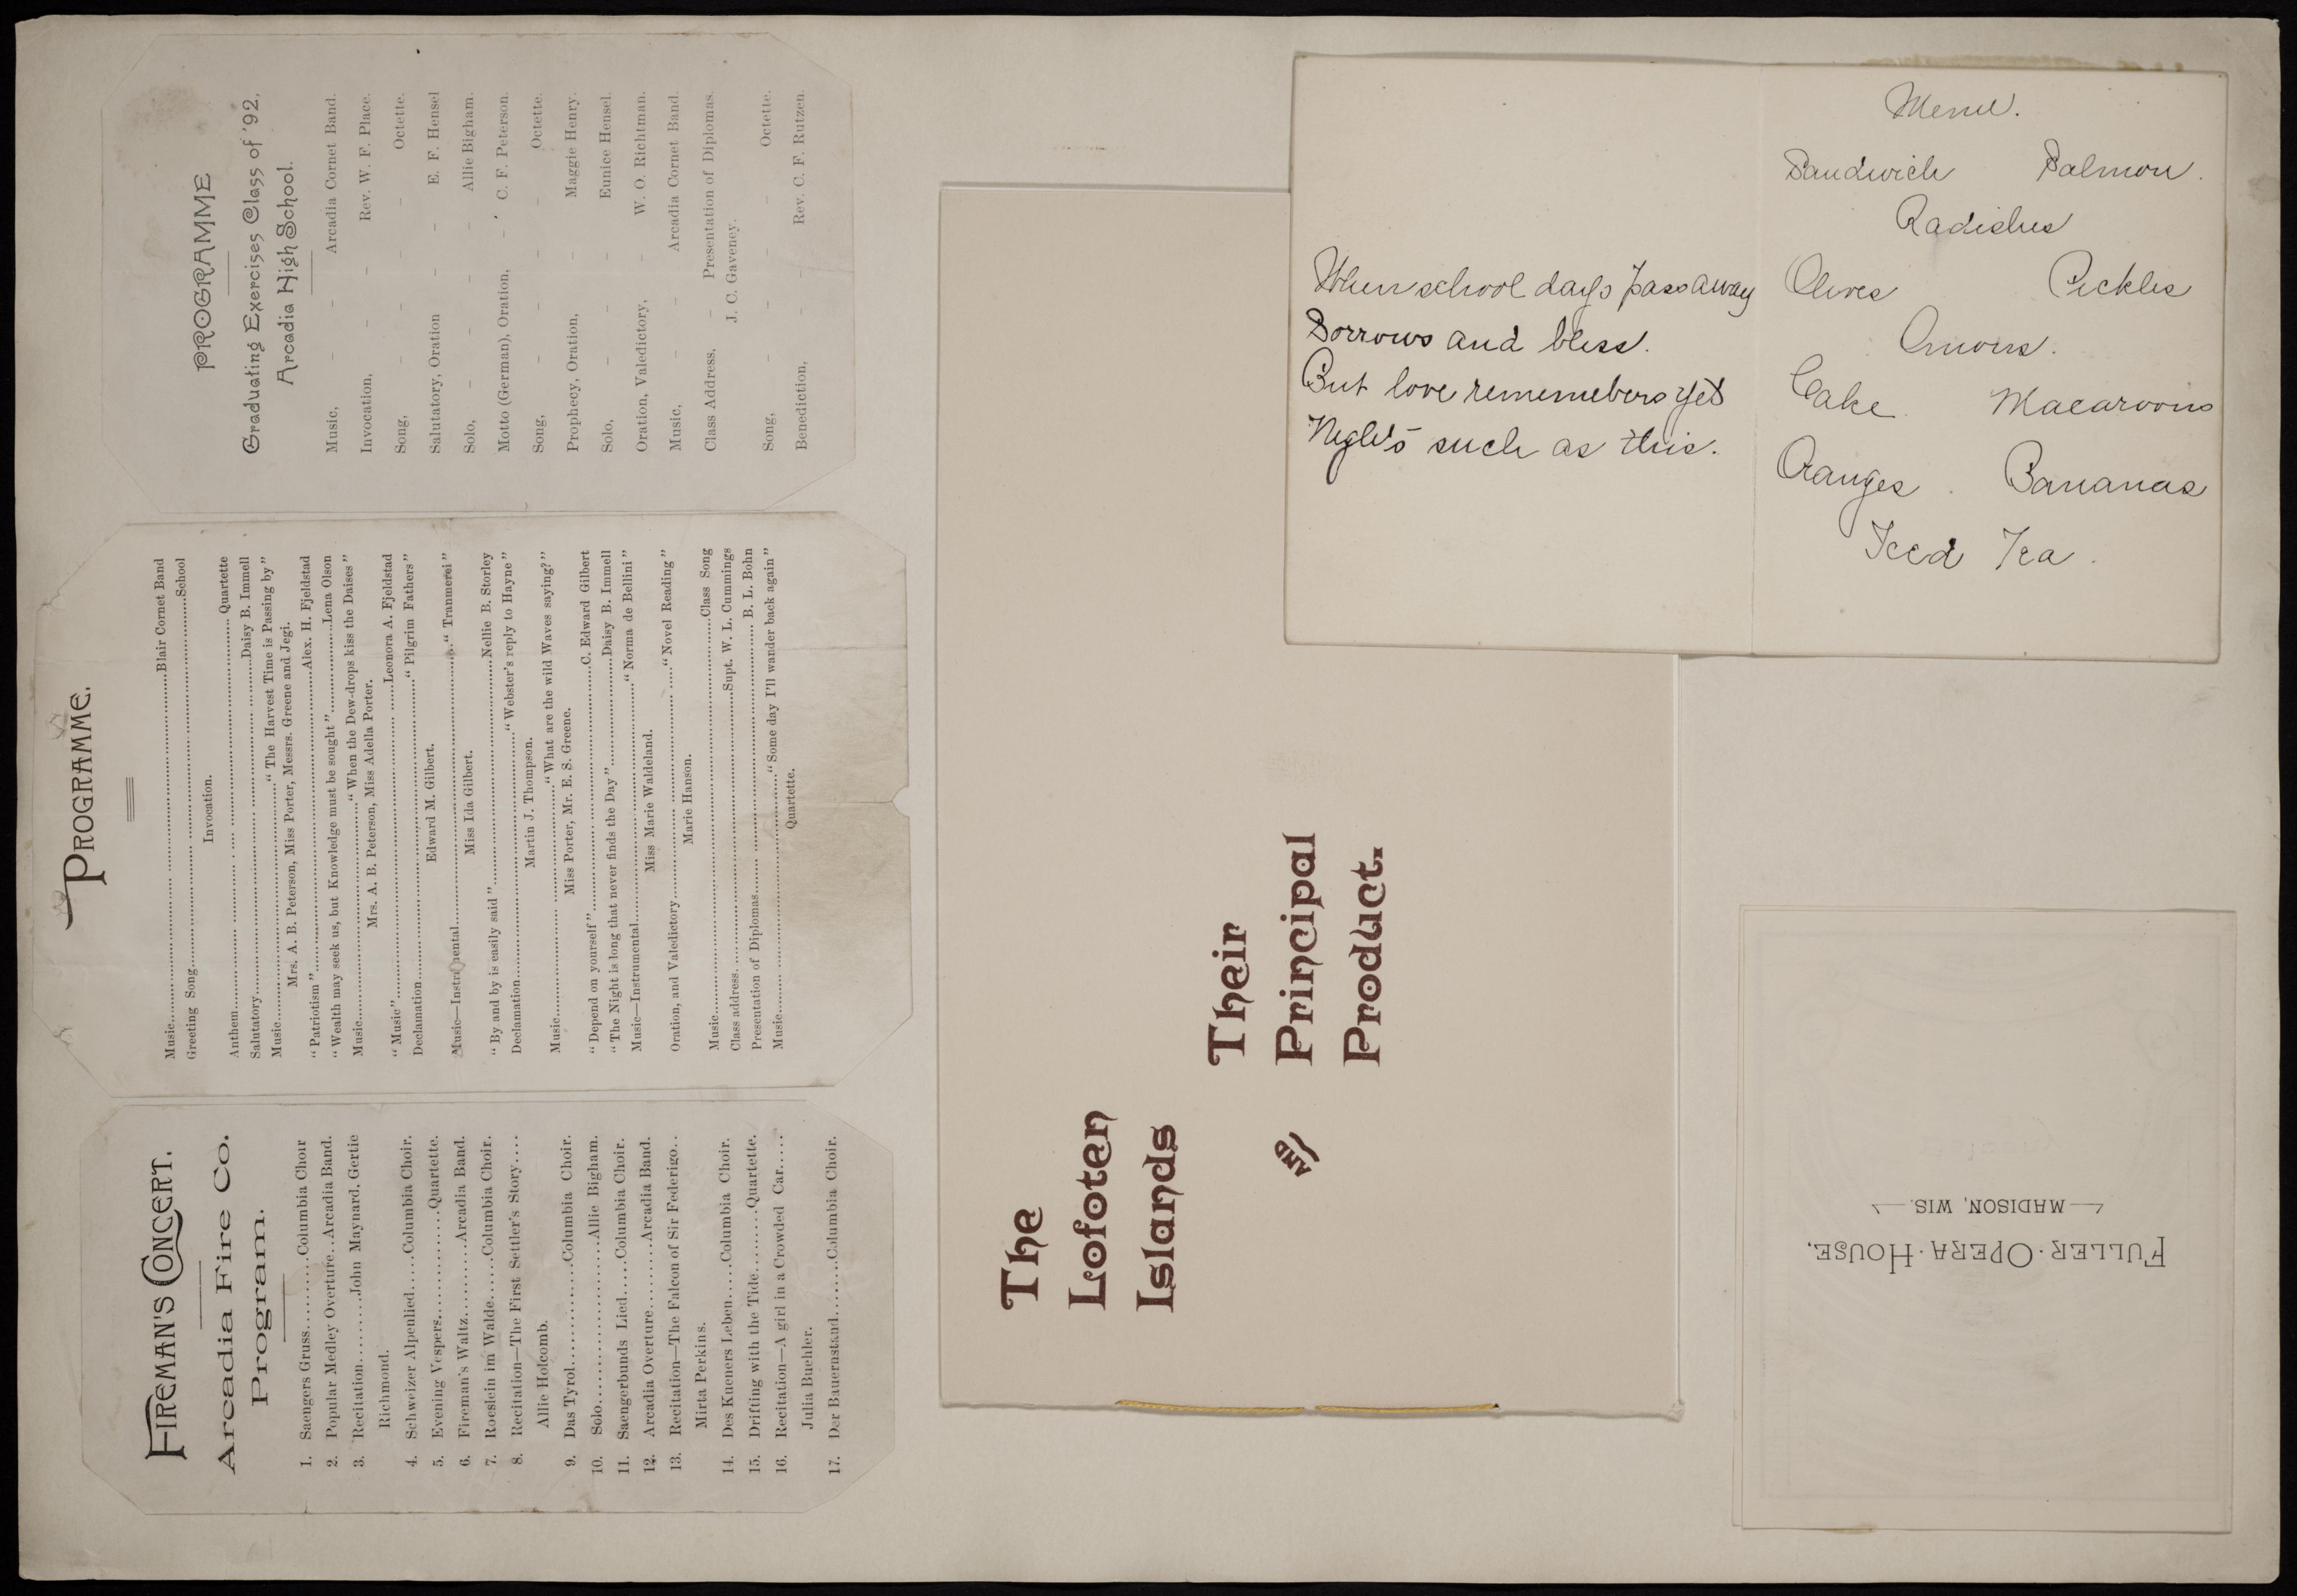 FIREMAN'S CONCERT.
Arcadia Fire Co.
Program.
1. Saengers Gruss..........Columbia Choir
2. Popular Medley Overture..Arcadia Band.
3. Recitation........John Maynard. Gertie
Richmond.
4. Schweizer Alpenlied......Columbia Choir.
5. Evening Vespers..............Quartette.
6. Fireman's Waltz..........Arcadia Band.
7. Roeslein im Walde......Columbia Choir.
8. Recitation—The First Settler's Story....
Allie Holcomb.
9. Das Tyrol..............Columbia Choir.
10. Solo....................Allie Bigham.
11. Saengerbunds Lied.....Columbia Choir.
12. Arcadia Overture........Arcadia Band.
13. Recitation—The Falcon of Sir Federigo..
Mirta Perkins.
14. Des Kueners Leben.....Columbia Choir.
15. Drifting with the Tide........Quartette.
16. Recitation—A girl in a Crowded Car.....
Julia Buehler.
17. Der Bauernstand........Columbia Choir.
PROGRAMME.
Music....................Blair Cornet Band
Greeting Song....................School
Invocation.
Anthem....................Quartette
Salutatory....................Daisy B. Immell
Music...................."The Harvest Time is Passing by"
Mrs. A. B. Peterson, Miss Porter, Messrs. Greene and Jegi.
"Patriotism"....................Alex. H. Fjeldstad
"Wealth may seek us, but Knowledge must be sought"..............Lena Olson
Music...................."When the Dew-drops kiss the Daises"
Mrs. A. B. Peterson, Miss Adella Porter.
"Music"....................Leonora A. Fjeldstad
Declamation...................."Pilgrim Fathers"
Edward M. Gilbert.
Music—Instrumental...................."Tranmerei"
Miss Ida Gilbert.
"By and by is easily said"....................Nellie B. Storley
Declamation...................."Webster's reply to Hayne"
Martin J. Thompson.
Music...................."What are the wild Waves saying?"
Miss Porter, Mr. E. S. Greene.
"Depend on yourself"....................C. Edward Gilbert
"The Night is long that never finds the Day"....................Daisy B. Immell
Music—Instrumental...................."Norma de Bellini"
Miss Marie Waldeland.
Oration, and Valedictory...................."Novel Reading"
Marie Hanson.
Music....................Class Song
Class address....................Supt. W. L. Cummings
Presentation of Diplomas....................B. L. Bohn
Music...................."Some day I'll wander back again"
Quartette.
PROGRAMME
Graduating Exercises Class of '92,
Arcadia High School.
Music, – – Arcadia Cornet Band.
Invocation, – – Rev. W. F. Place.
Song, – – – Octette.
Salutatory, Oration – – E. F. Hensel
Solo, – – – – Allie Bigham.
Motto (German), Oration, – C. F. Peterson.
Song, – – – Octette.
Prophecy, Oration, – Maggie Henry.
Solo, – – – Eunice Hensel.
Oration, Valedictory, – W. O. Richtman.
Music, – – Arcadia Cornet Band.
Class Address, – Presentation of Diplomas.
J. C. Gaveney.
Song, – – – Octette.
Benediction, – – Rev. C. F. Rutzen.
The
Lofoten
Islands
and
Their
Principal
Product.
When school days pass away
Sorrows and bless.
But love rememebers yet
Night's such as this.
Menu.
Sandwich Salmon.
Radishes
Olives Pickles
Onions.
Cake Macaroons
Oranges Bananas
Iced Tea
FULLER·OPERA·HOUSE,
MADISON, WIS.